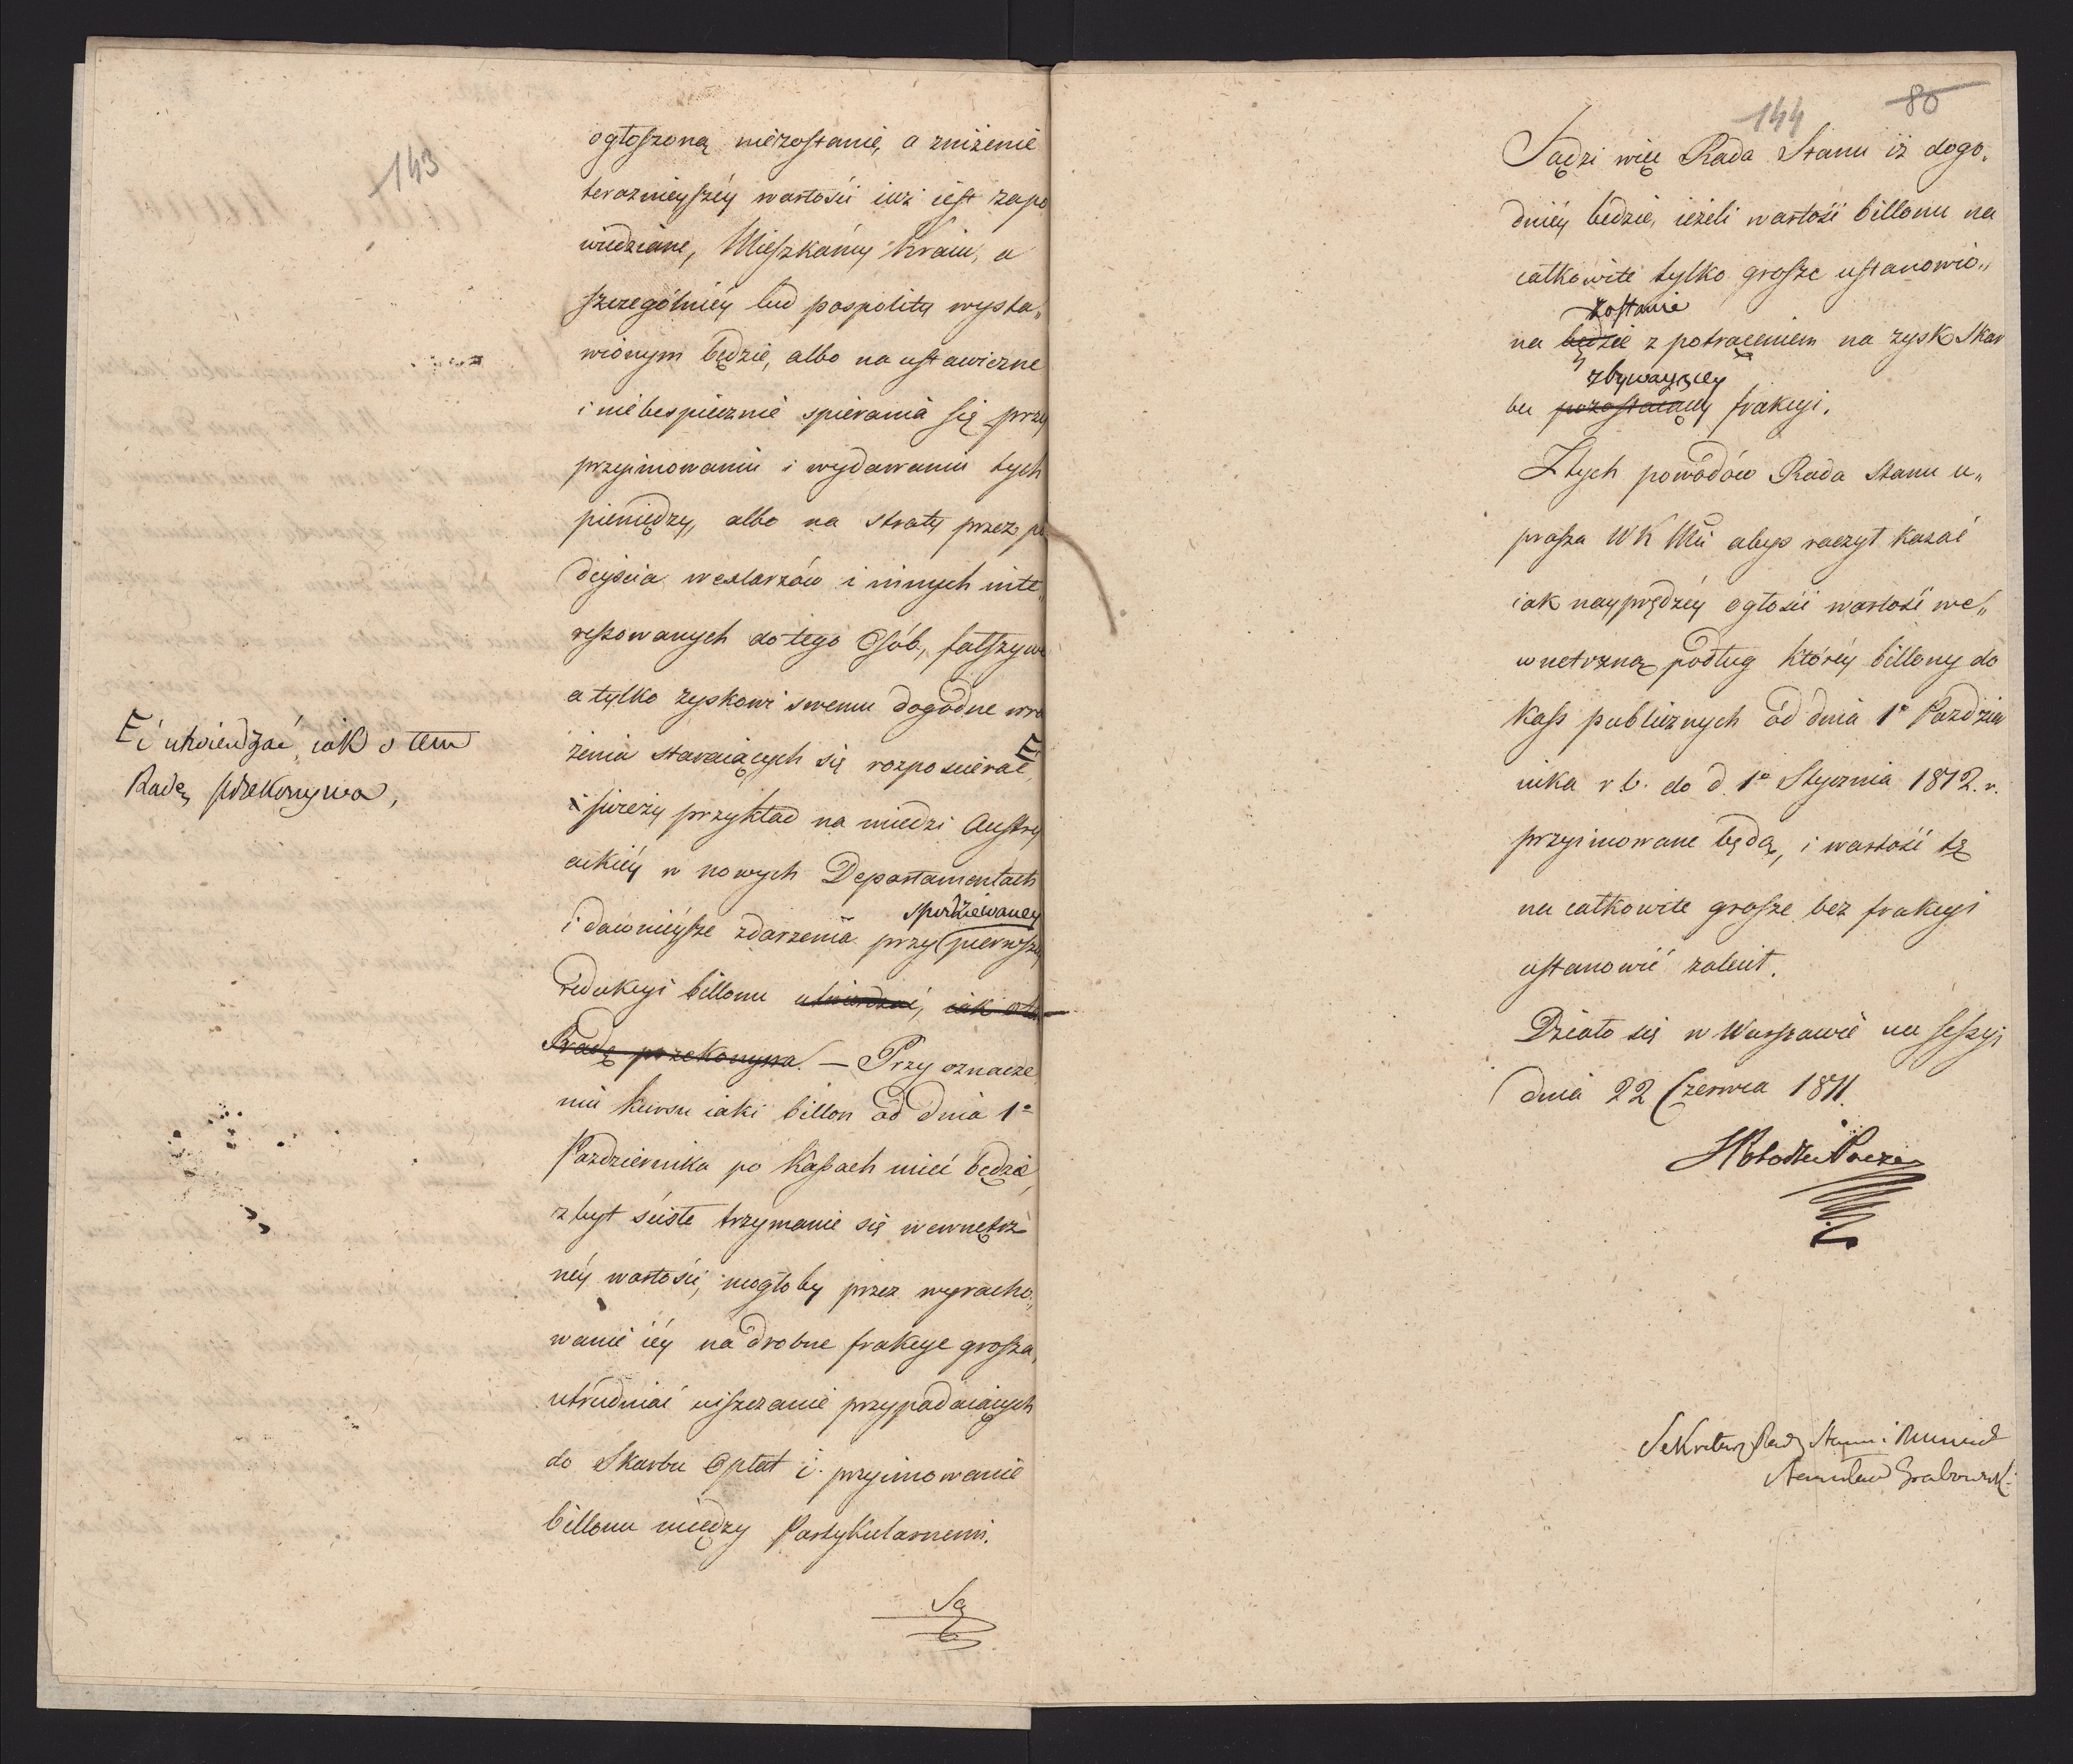 143
ogłoszoną niezostanie, a zniżenie
teraznieyszéy wartości iuż iest zapo
wiedziane, Mieszkańcy kraiu, a
szczególniéy lud pospolity wysta„
wionym będzie, albo na ustawiczne
i niebespiecznie spierania się przy
przyimowaniu i wydawaniu tych
pieniędzy, albo na straty przez po
deyścia wexlarzów i innych inte„
ressowanych do tego Osób, fałszywe
a tylko zyskowi swemu dogodne wra
żenia staraiących się rozpościerać
i świeży przykład na miedzi Austry
ackiéy w nowych Departamentach
spodziewaney
i dawnieysze zdarzenia przy pierwszey
redukcyi billonu utwierdzać, iak o tem
Radę przekonywa. — Przy oznacze
niu kursu iaki billon od dnia 1°
Pazdziernika po Kassach mieć będzie,
zbyt ściste trzymanie się wewnętrz
néy wartości, mogłoby przez wyracho„
wanie iéy na drobne frakcye grosza,
utrudniać uiszczanie przypadaiących
do Skarbu Opłat i przyimowanie
billonu między Partykularnemi.
Są
i utwierdzać, iak o tem
Radę przekonywa,
144 80
Sądzi więc Rada Stanu iż dogo„
dniéy będzie, ieżeli wartość billonu na
całkowite tylko grosze ustanowio„
zostanie
na będzie z potrąceniem na zysk Skar
zbywaiącey
bu pozostaiący frakcyi.
Z tych powodów Rada Stanu u„
prasza WK Mći abyś raczył kazać
iak nayprędzéy ogłosić wartość we„
wnętrzną podług któréy billony do
Kass publicznych od dnia 1° Paździer
nika r. b. do d. 1° Stycznia 1812. r.
przyimowane będą, i wartość tę
na całkowite grosze bez frakcyi
ustanowić zalecił.
Działo się w Warszawie na Sessyi
dnia 22 Czerwca 1811.
Sekretarz Rady Stanu i Ministr
Stanisław Grabowski